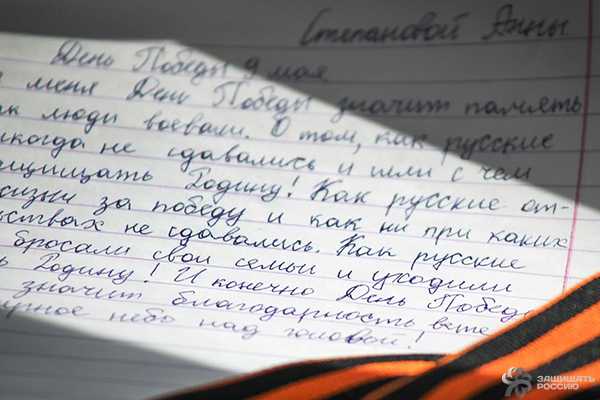 Степановой Анны
День Победы 9 мая
меня День Победы значит память
люди воевали. О том, как русские
никогда не сдавались и шли с чем
защищать Родину! Как русские от-
жизни за победу и как ни при каких
не сдавались. Как русские
бросали свои семьи и уходили
Родину! И конечно День Победы
значит благодарность вете
небо над головой!
ЗАЩИЩАТЬ
РОССИЮ